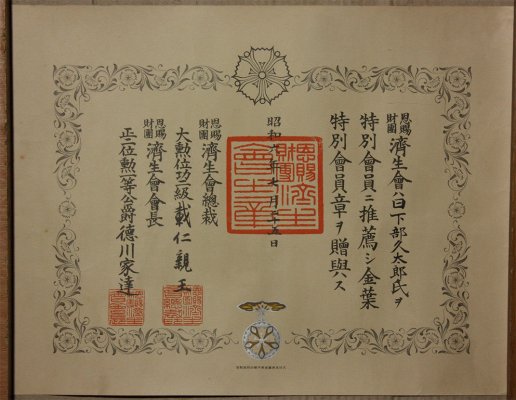 恩賜
財團 濟生會ハ日下部久太郎氏ヲ
特別會員ニ推薦シ金葉
特別會員章ヲ贈與ス
昭和六年七月二十五日
恩賜
財團 濟生會總裁
大勲位功一級載仁親王
恩賜
財團 濟生會會長
正二位勲一等公爵德川家達